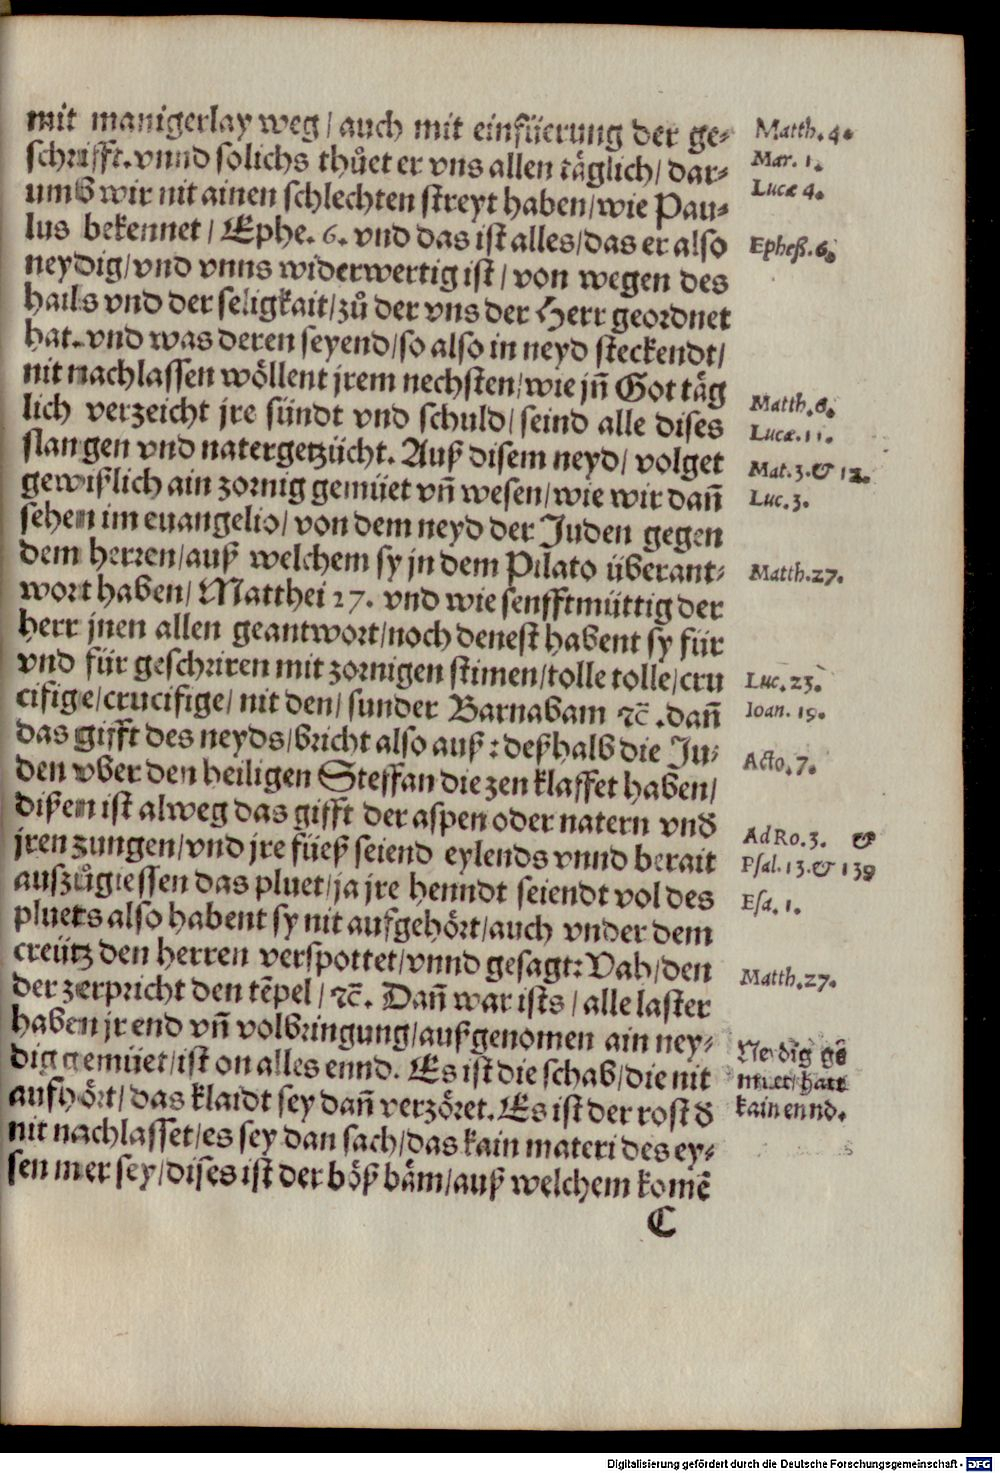 mit manigerlay weg/ auch mit einfüerung der ge⸗
schrifft. vnnd solichs thůet er vns allen täglich/ dar⸗
umb wir nit ainen schlechten streyt haben/ wie Pau⸗
lus bekennet/ Ephe. 6. vnd das ist alles/ das er also
neydig/ vnd vnns widerwertig ist/ von wegen des
hails vnd der seligkait/ zů der vns der Herr geordnet
hat. vnd was deren seyend/ so also in neyd steckendt/
nit nachlassen wöllent jrem nechsten/ wie jn̄ Got täg
lich verzeicht jre sündt vnd schuld/ seind alle dises
slangen vnd natergetzücht. Auß disem neyd/ volget
gewißlich ain zornig gemüet vn̄ wesen/ wie wir dan̄
sehen im euangelio/ von dem neyd der Juden gegen
dem herren/ auß welchem sy jn dem Pilato überant⸗
wort haben/ Matthei 27. vnd wie senfftmüttig der
herr jnen allen geantwort/ noch denest habent sy für
vnd für geschriren mit zornigen stimen/ tolle tolle/ cru
cifige/ crucifige/ nit den/ sunder Barnabam ⁊c̄. dan̄
das gifft des neyds/ bricht also auß: deßhalb die Ju⸗
den vber den heiligen Steffan die zen klaffet haben/
dißen ist alweg das gifft der aspen oder natern vnd̄
jren zungen/ vnd jre füeß seiend eylends vnnd berait
auszůgiessen das pluet/ ja jre henndt seiendt vol des
pluets also habent sy nit aufgehört/ auch vnder dem
creütz den herren verspottet/ vnnd gesagt: Vah/ den
der zerpricht den tēpel/ ⁊c̄. Dan̄ war ists/ alle laster
haben jr end vn̄ volbringung/ außgenomen ain ney⸗
dig gemüet/ ist on alles ennd. Es ist die schab/ die nit
aufhört/ das klaidt sey dan̄ verzöret. Es ist der rost d̄
nit nachlasset/ es sey dan sach/ das kain materi des ey⸗
sen mer sey/ dises ist der böß bäm/ auß welchem komē
C
Matth. 4.
Mar. 1.
Lucæ 4.
Epheß. 6.
Matth. 6.
Lucæ. 11.
Mat. 3. & 12.
Luc. 3.
Matth. 27.
Luc. 23.
Ioan. 19.
Acto. 7.
Ad Ro. 3. &
Psal. 13. & 139
Esa. 1.
Matth. 27.
Neydig ge
müet/ hatt
kain ennd.
Digitalisierung gefördert durch die Deutsche Forschungsgemeinschaft - DFG